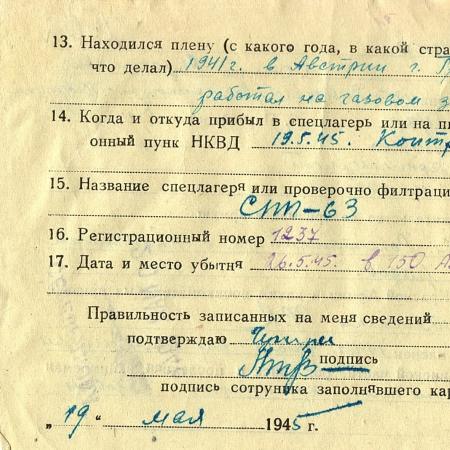 13. Находился плену (с какого года, в какой стра
что делал) 1941 г. в Австрии г.
работал на газовом
14. Когда и откуда прибыл в спецлагерь или на п
онный пунк НКВД 19.5.45.
15. Название спецлагеря или проверочно филтраци
СПП-63
16. Регистрационный номер 1237
17. Дата и место убытня 26.5.45. в 150
Правильность записанных на меня сведений
подтверждаю
подпись
подпись сотруника заполнявшего кар
„19“ мая 1945 г.